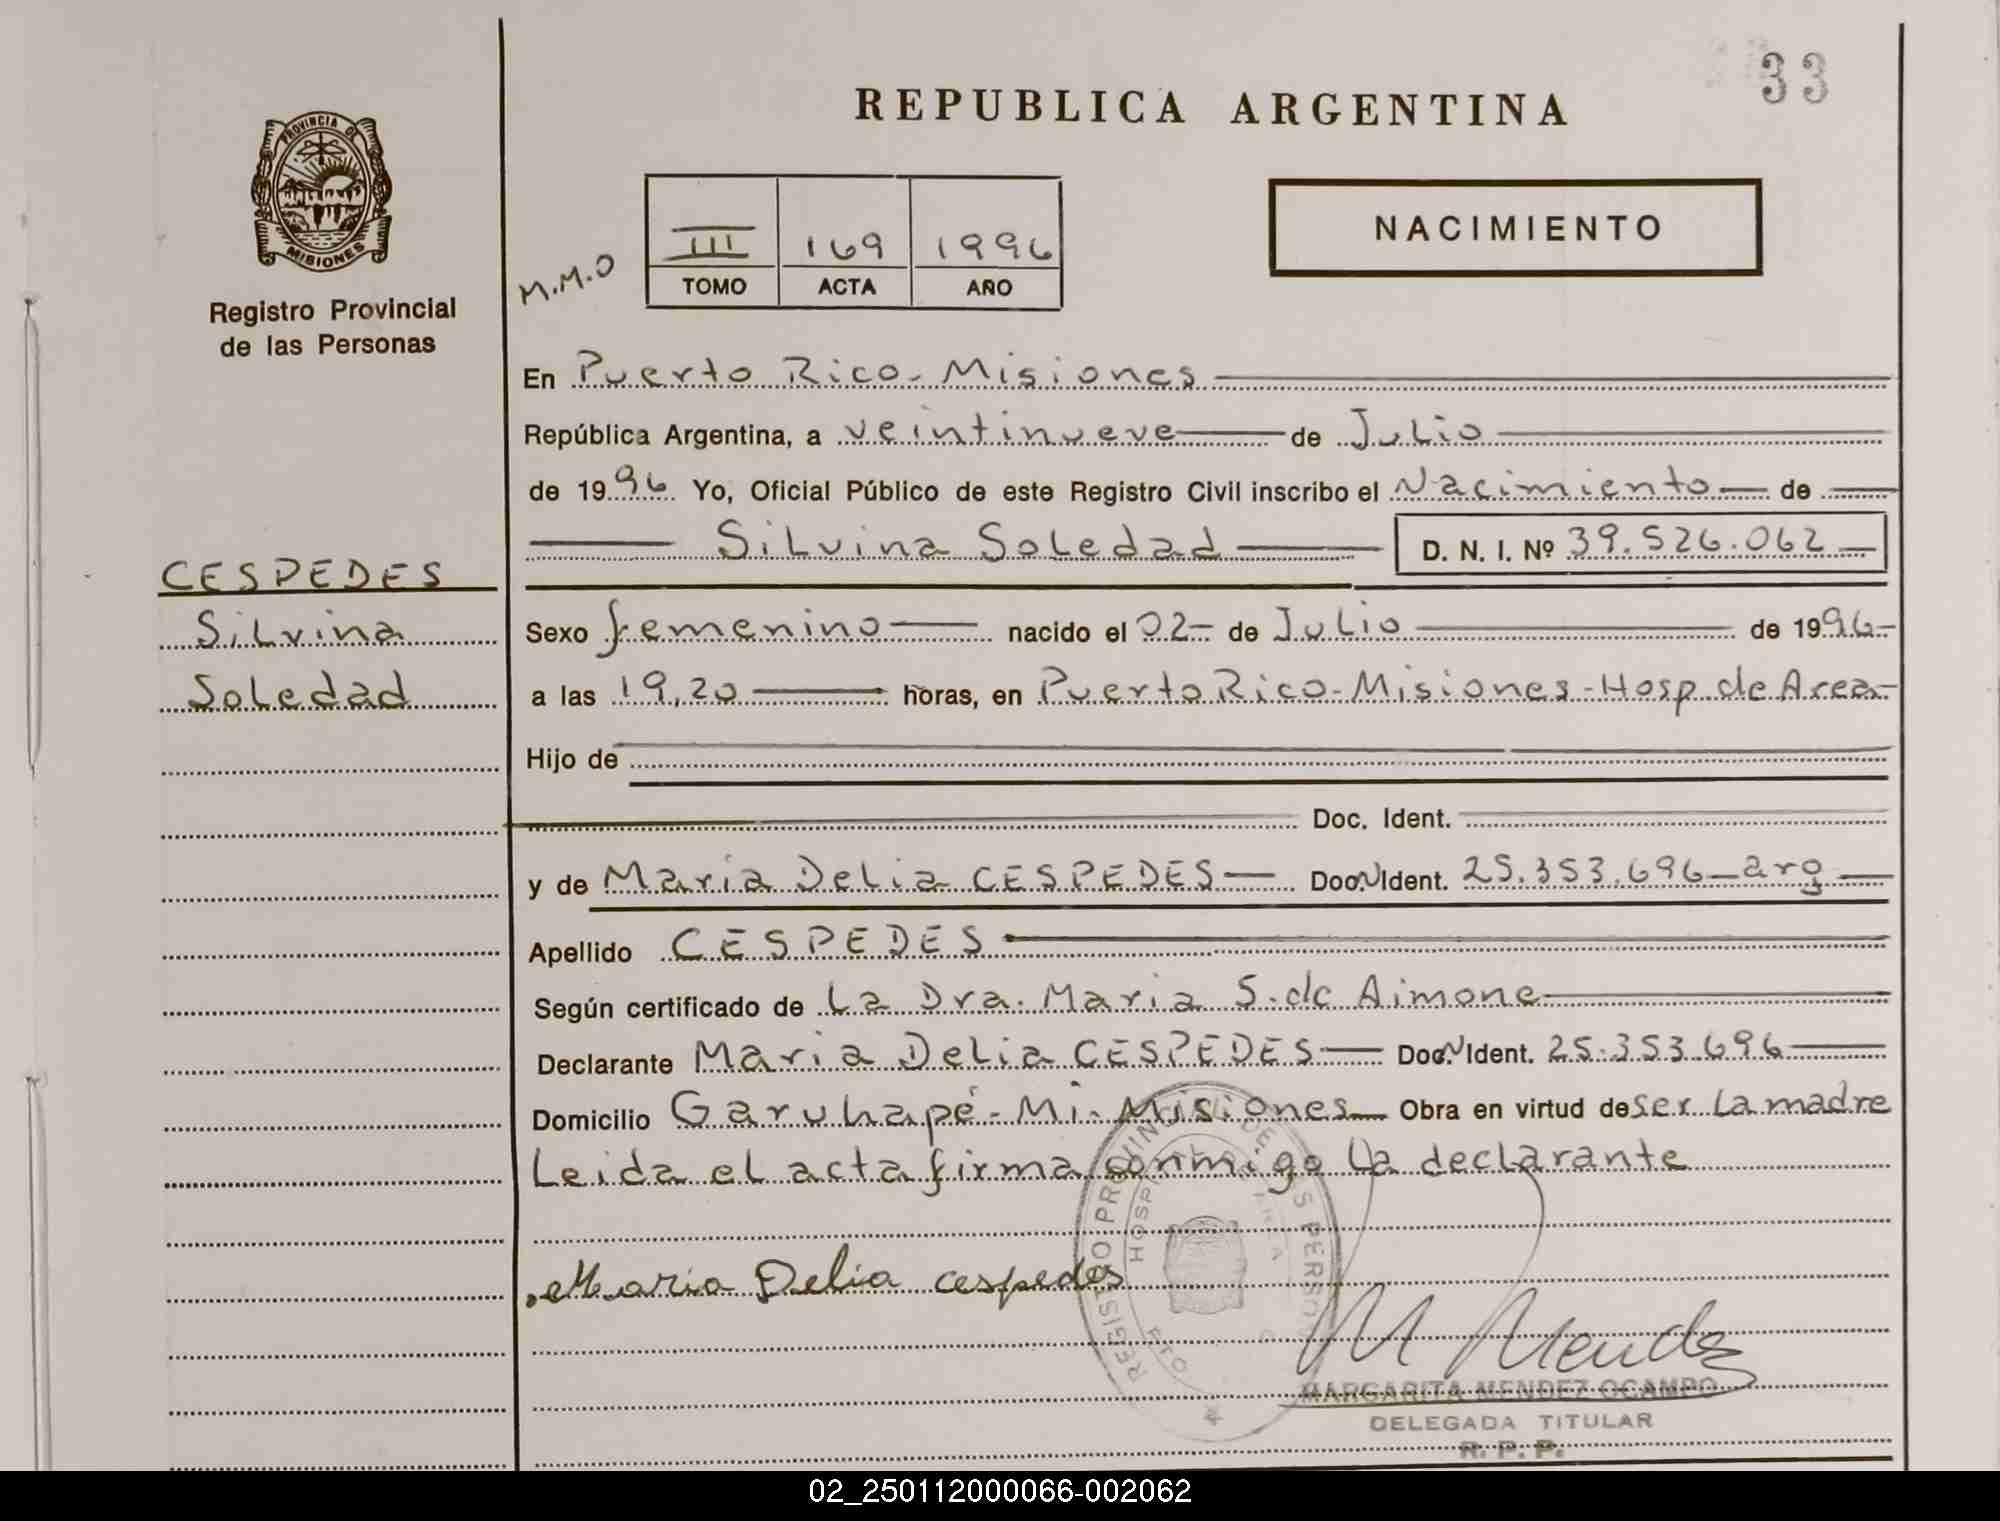 33
REPUBLICA ARGENTINA
PROVINCIA DE
MISIONES
Registro Provincial
de las Personas
NACIMIENTO
M.M.O
III 169 1996
TOMO ACTA AÑO
En Puerto Rico - Misiones
República Argentina, a veintinueve de Julio
de 1996 Yo, Oficial Público de este Registro Civil inscribo el Nacimiento de
Silvina Soledad D. N. I. Nº 39.526.062
CESPEDES
Silvina
Soledad
Sexo femenino nacido el 02 - de Julio de 1996 -
a las 19,20 horas, en Puerto Rico - Misiones - Hosp de Area -
Hijo de
Doc. Ident.
y de Maria Delia CESPEDES Doc. N Ident. 25.353.696 - arg
Apellido CESPEDES
Según certificado de La Dra. Maria S. de Aimone
Declarante Maria Delia CESPEDES Doc. N Ident. 25.353.696
Domicilio Garuhapé - Mi - Misiones Obra en virtud de ser la madre
Leida el acta firma conmigo la declarante
Maria Delia cespedes
REGISTRO PROVINCIAL DE LAS PERSONAS
HOSPITAL DE AREA
M Mendez
MARGARITA MENDEZ OCAMPO
DELEGADA TITULAR
R. P. P.
02_250112000066-002062